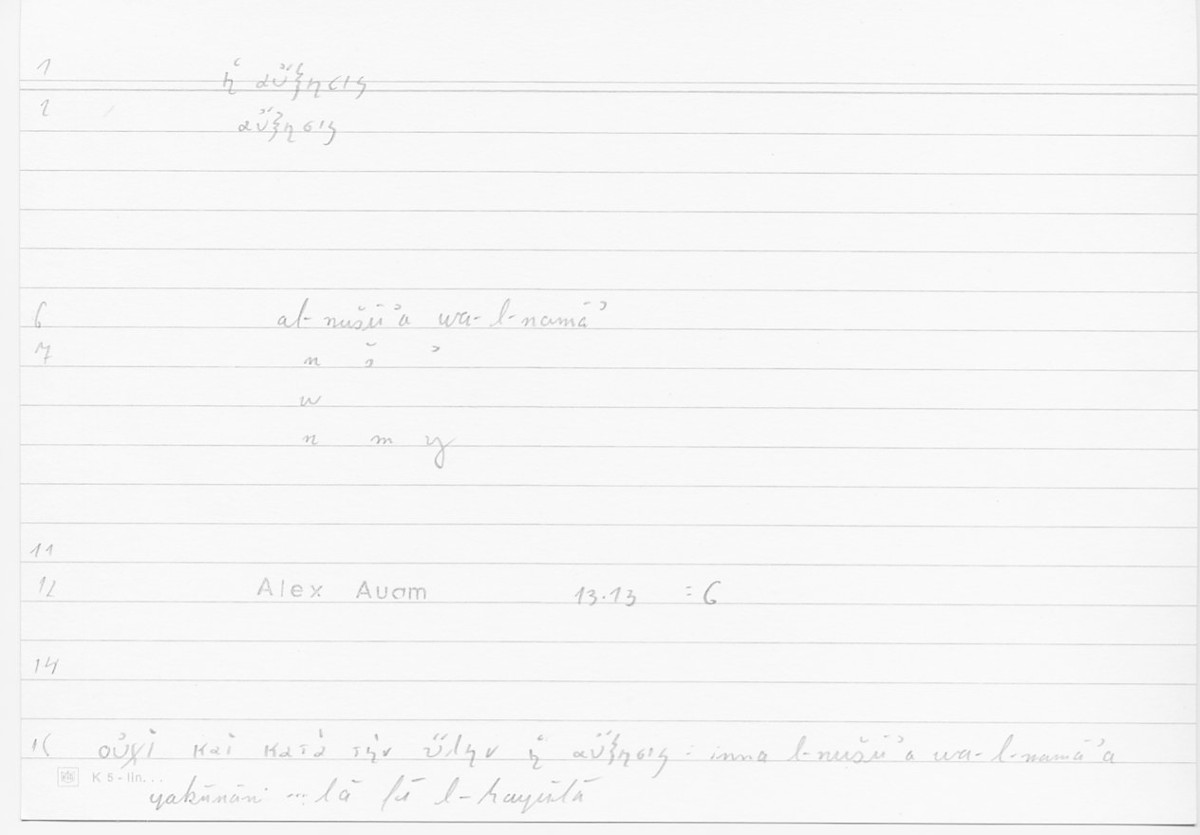 1 ἡ αὔξησις
2 αὔξησις
6 al-nušūʾa wa-l-namāʾ
7 n š ʾ
w
n m y
11
12 Alex Auam 13.13 = 6
14
16 οὐχὶ καὶ κατὰ τὴν ὕλην ἡ αὔξησις : inna l-nušūʾa wa-l-namāʾa
K 5 - lin...
yakūnāni ... lā fī l-hayūlā